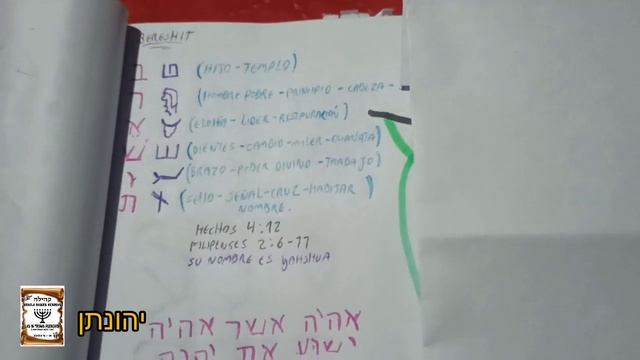 BERESHIT
ב (HIJO - TEMPLO)
ר (HOMBRE POBRE - PRINCIPIO - CABEZA -
א (ELOHIM - LIDER - RESTAURACIÓN)
ש (DIENTES - CAMBIO - MILER - CHANATA)
י (BRAZO - PODER DIVINO - TRABAJO)
ת (SELLO - SEÑAL - CRUZ - HABITAR)
NOMBRE.
HECHOS 4:12
FILIPENSES 2:6-11
SU NOMBRE ES YAHSHUA
אהיה אשר אהיה
קהילה
יהונתן